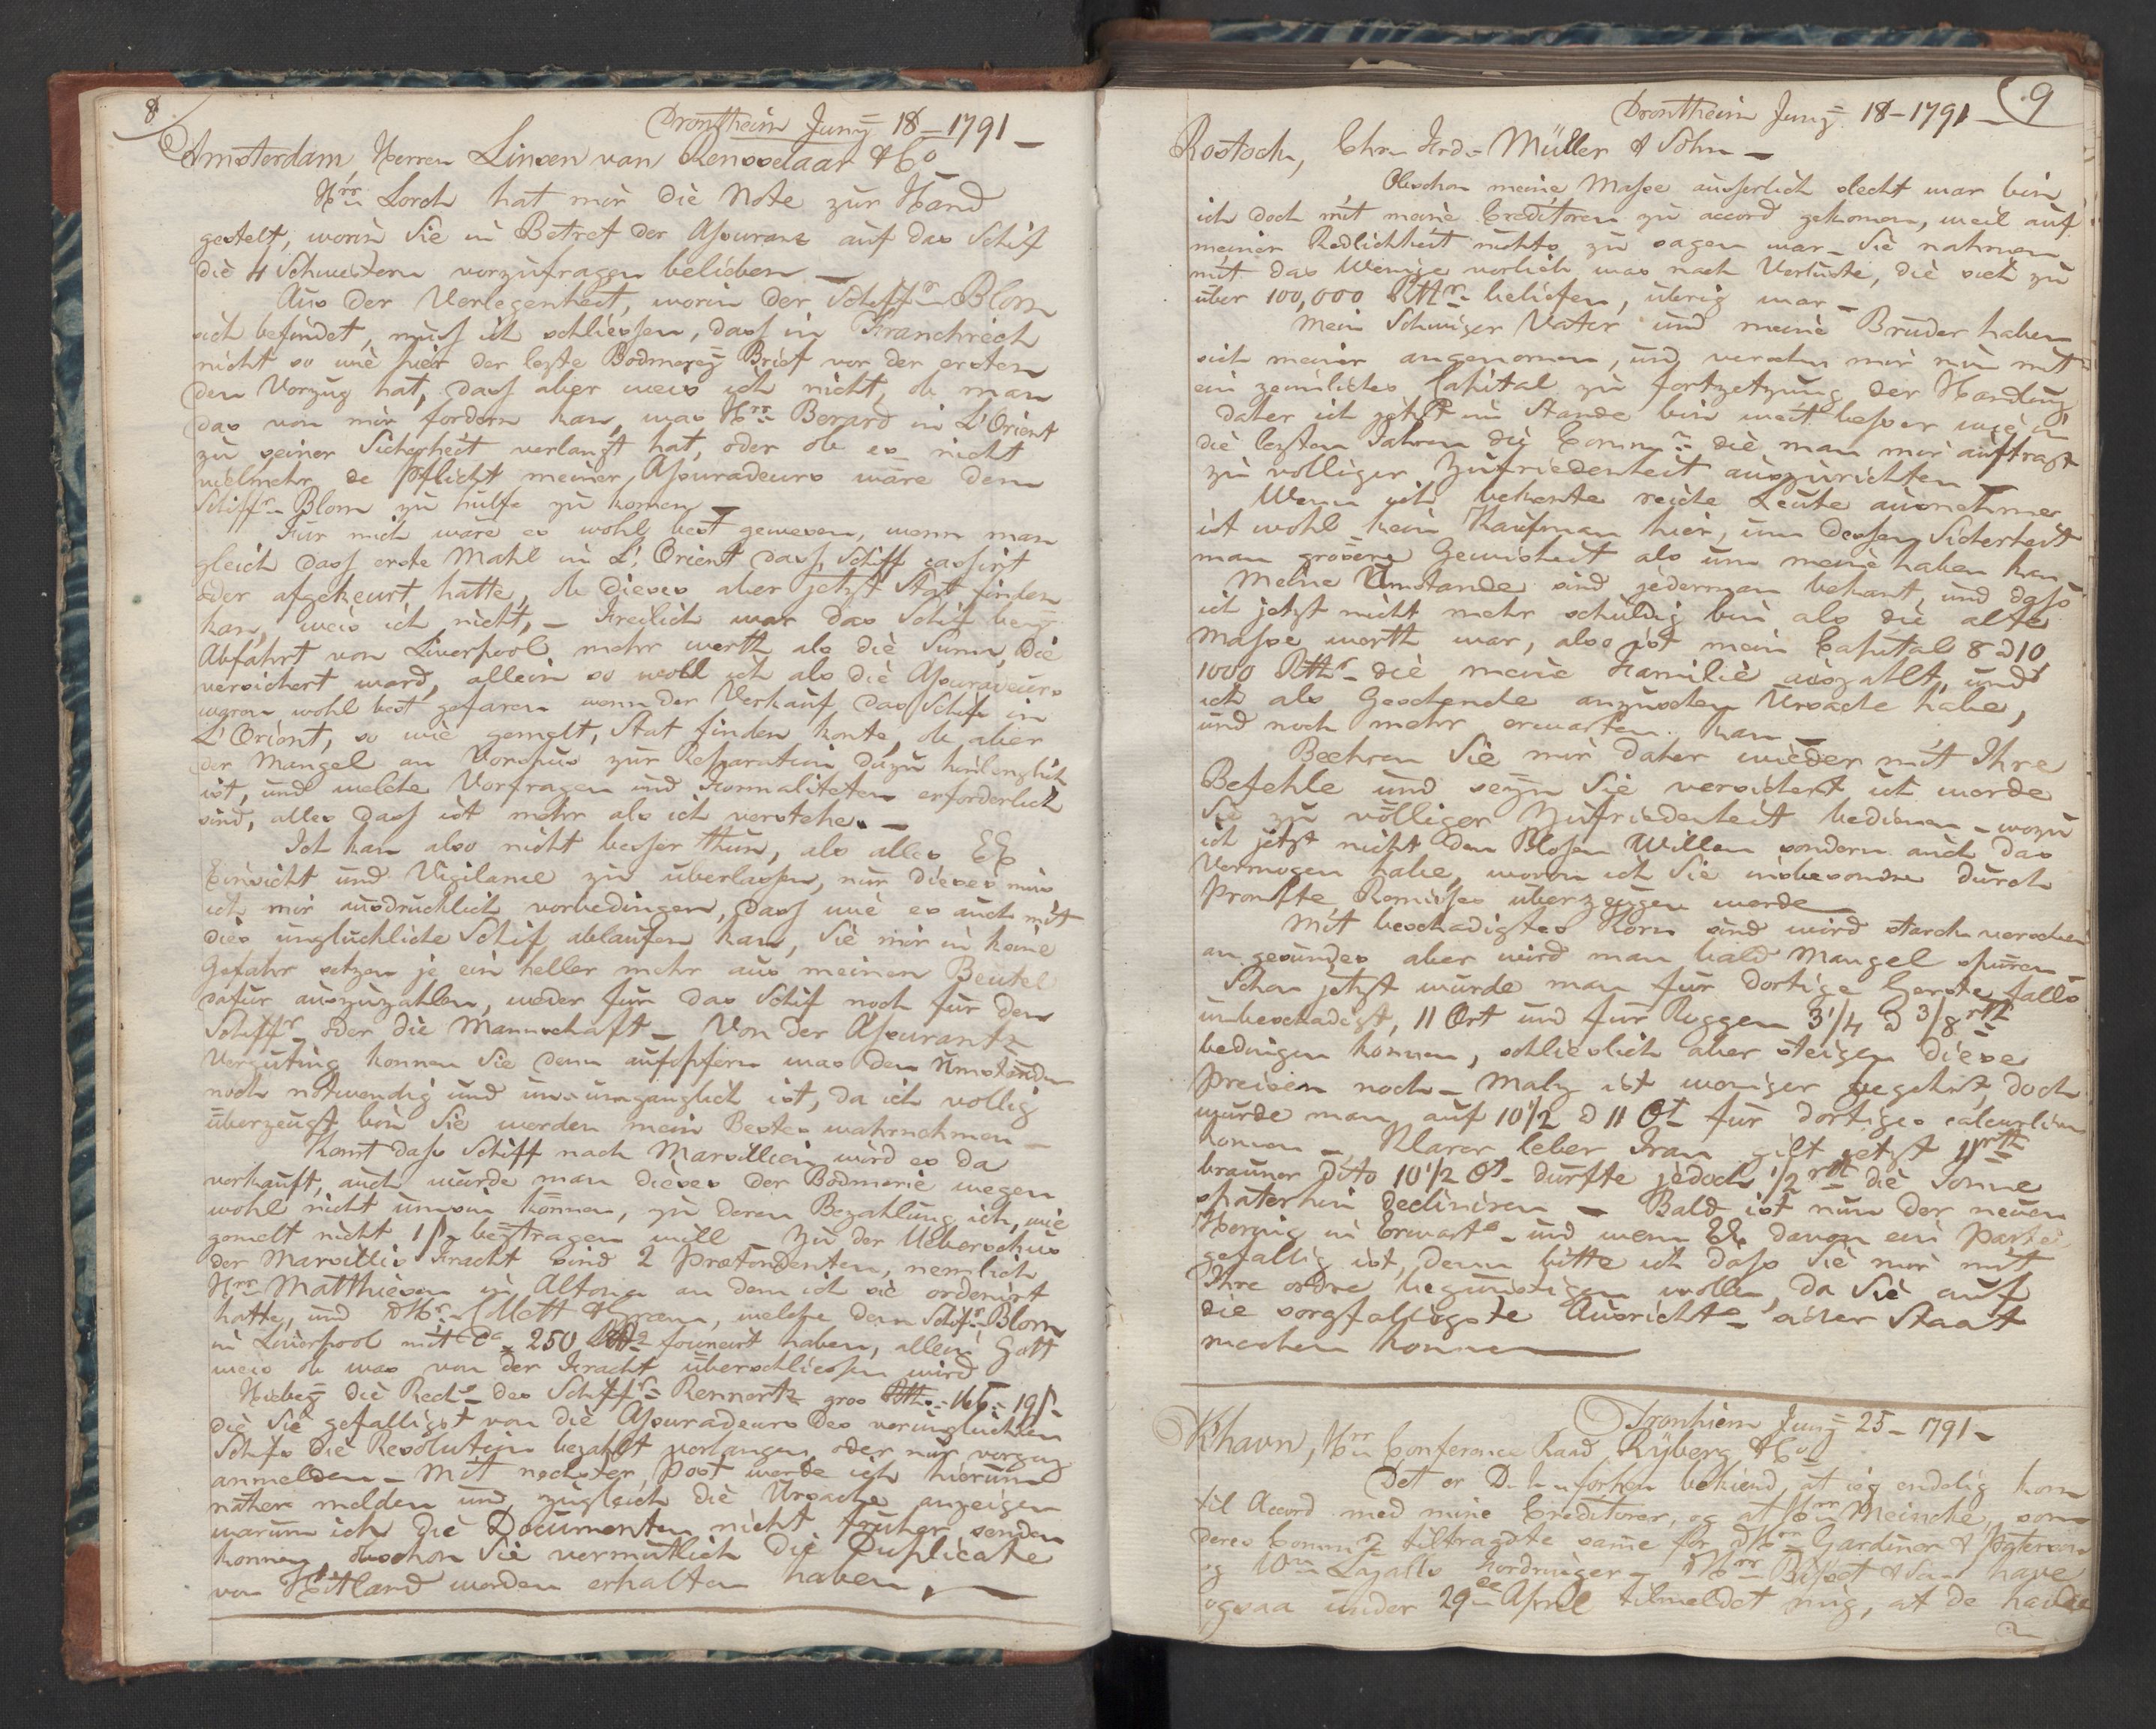 8
Drontheim Junÿ 18 - 1791 -
Amsterdam, Herren Linsen van Rensselaar & Co
Hrr Lorch hat mir die Note zur Hand
gestelt, worin Sie in Betref der Assurans auf das Schif
die 4 Schwestern vorzufragen belieben -
Aus der Verlegenheit, worin der Schiffr Blom
sich befindet, muss ich schliessen, dass in Franckreich
nicht so wie hier der lezte Bodmereÿ Brief vor der ersten
den Vorzug hat, dass aber weis ich nicht, ob man
das von mir fordern kan, was Hrr Berard in L'Orient
zu seiner Sicherheit verlangt hat, oder ob es nicht
vielmehr de Pflicht meiner Assuradeurs wäre dem
Schiffr Blom zu hulfe zu komen -
Für mich wäre es wohl best gewesen, wenn man
gleich dass erste Mahl in L'Orient dass Schiff cassirt
oder afgekeurt hatte, ob dieses aber jetzt Stat finden
kan, weis ich nicht, - Freilich war das Schif beÿ
Abfahrt von Liverpool mehr werth als die Sum, die
versichert ward, allein so wohl ich als die Assuradeurs
waren wohl best gefaren wenn der Verkauf das Schif in
L'Orient, so wie gemelt, Stat finden konte, ob aber
der Mangel an Vorschus zur Reparation dazu hinlenglich
ist, und welche Vorfragen und Formaliteten erforderlich
sind, alles dass ist mehr als ich verstehe. -
Ich kan also nicht besser thun, als alles EE
Einsicht und Vigilance zu überlassen, nur dieses mus
ich mir ausdrucklich vorbedingen, dass wie es auch mit
dies unglückliche Schif ablaufen kan, Sie mir in keine
Gefahr setzen je ein heller mehr aus meinen Beutel
dafür auszuzahlen, weder für das Schif noch für den
Schiffr oder die Mannschaft - Von der Assurants
Vergüting konnen Sie denn aufopfern was den Umständen
noch notwendig und un-umganglich ist, da ich vollig
überzeugt bin Sie werden mein Bestes wahrnehmen -
Komt dass Schiff nach Marsillien wird es da
verkauft, auch wurde man dieses der Bodmerie wegen
wohl nicht umhin können, zu deren Bezahlung ich, wie
gemelt nicht 1ß beÿtragen will - Zu der Ueberschus
der Marsillis Fracht sind 2 Prætendenten, nemlich
Hrr Matthiesen in Altona an dem ich sie ordenirt
hatte, und DHr Mott & Gram, welche dem Schifr Blom
in Liverpool mit Ca 250 founirt haben, allein Gott
weis ob was von der Fracht überschiessen wird
Hiebeÿ die Rech des Schiffrs Rennerts gros 166 - 19ß -
die Sie gefalligst von die Assuradeurs des verunglückten
Schifs die Resolution bezahlt verlangen, oder nur vorzug
anmelden - Mit nechster Post werde ich hierum
näher melden und zugleich die Ursache anzeigen
warum ich die Documenten nicht früher senden
konnen, obschon Sie vermutlich die Duplicate
von Hitland werden erhalten haben -
9
Drontheim Junÿ 18 - 1791 -
Rostock, Chrn Frd Müller & Sohn -
Obschon meine Masse ausserlich slecht war bin
ich doch mit meine Creditoren zu accord gekomen, weil auf
meiner Redlichkeit nichts zu sagen war - Sie nahmen
mit das Wenige vorlieb was nach Verluste, die sich zu
über 100,000 Rthr beliefen, übrig war -
Mein Schwiger Vater und meine Brüder haben
sich meiner angenomen, und versehn mir nun mit
ein zemliches Capital zu fortzetzung der Handlung
daher ich jetzt im Stande bin weit besser wie in
die lezten Jahren die Comms die man mir auftragt
zu volliger Zufriedenheit auszurichten -
Wenn ich bekente reiche Leute ausnehme
ist wohl kein Kaufman hier, um dessen Sicherheit
man grosere Gewisheit als um meine haben kan -
Meine Umstande sind jederman bekant, und dass
ich jetzt nicht mehr schuldig bin als die alte
Masse werth war, also ist mein Capital 8 à 10,
1000 Rthr - die meine Familie auszahlt, und
ich als Geschenke anzusehen Ursache habe,
und noch mehr erwarten kan -
Beehren Sie mir daher wieder mit Ihre
Befehle und seÿn Sie versichert ich werde
Sie zu völliger Zufriedenheit bedienen - wozu
ich jetzt nicht den Blosen Willen sondern auch das
Vermogen habe, wovon ich Sie insbesondre durch
Prompte Remises überzeugen werde
Mit beschadigtes Korn sind wird starck versehen
an gesundes aber wird man bald Mangel spüren
Schon jetzt wurde man für dortige Gerste falls
unbeschadigt, 11 Ort und für Roggen 3 1/4 à 3/8 rth
bedingen konnen, schlieslich aber steigen diese
Preisen noch - Malz ist weniger begehrt, doch
wurde man auf 10 1/2 à 11 Ot für dortiges calculiren
konnen - Klarer leber Tran gilt jetzt 11 rth
brauner dito 10 1/2 Ot - durfte jedoch 1/2 rth die Tonne
spaterhin decliniren - Bald ist nun der neuen
Hering in Erwart - und wenn EE davon ein Partei
gefallig ist, denn bitte ich dass Sie mir mit
Ihre ordre begünstigen wollen, da Sie auf
die sorgfaltigste Ausricht - sicher Staat
machen konnen
Tronhiem Junÿ 25 - 1791 -
Khavn, Hrr Conference Raad Rÿberg & Co
Det er D. forhen bekiend, at ieg endelig kom
til Accord med mine Creditorer, og at Hrr Meincke, som
deres Comms tiltraadte samme for DHrr Gardiner & Paterson
og Wm Fordringer - DHrr Bisset & have
ogsaa under 29de April tilmeldet mig, at de havde